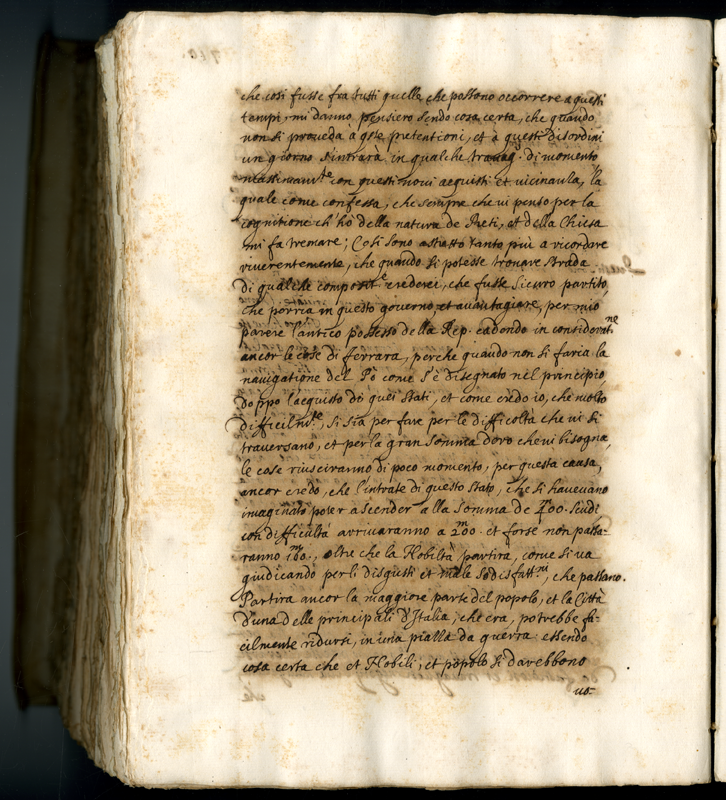 che cosi fusse fra tutti quelle che possono occorrere a questi
tempi, mi danno pensiero sendo cosa certa, che quando
non si proueda a qste pretentioni, et à questi disordini
un giorno s'intrarà in qualche trauag. di momento
massimam.te con questi noui acquisti et uicinanza, la
quale come confessa, che sempre che ui penso per la
cognitione ch'hò della natura de Preti, et della Chiesa
mi fa tremare; Cosi sono astratto tanto più a ricordare
riuerentemente, che quando si potesse trouare strada
di qualche composit.e crederei, che fusse sicuro partito,
che porria in questo gouerno et auantagiare, per mio
parere l'antico possesso della Rep. cadendo in considerat.ne
ancor le cose di ferrara, perche quando non si faria la
nauigatione del Pò come s'è disegnato nel principio,
doppo l'acquisto di quei stati, et come credo io, che molto
difficilm.te, si sia per fare per le difficoltà che ui si
trauersano, et per la gran somma d'oro che ui bisogna,
le cose riusciranno di poco momento, per questa causa,
ancor credo, che l'intrate di questo stato, che si haueuano
imaginato poter ascender alla somma de 400.m scudi
con difficultà arriuaranno a 200.m et forse non passa-
ranno 100.m, oltre che la Nobiltà partirà, come si ua
giudicando per li disgusti et male sodisfatt.ni, che passano.
Partirà ancor la maggiore parte del popolo, et la Città
d'una delle principali d'Italia, che era, potrebbe fa-
cilmente ridursi, in una piazza da guerra essendo
cosa certa che et Nobili, et popolo si darebbono
uo-